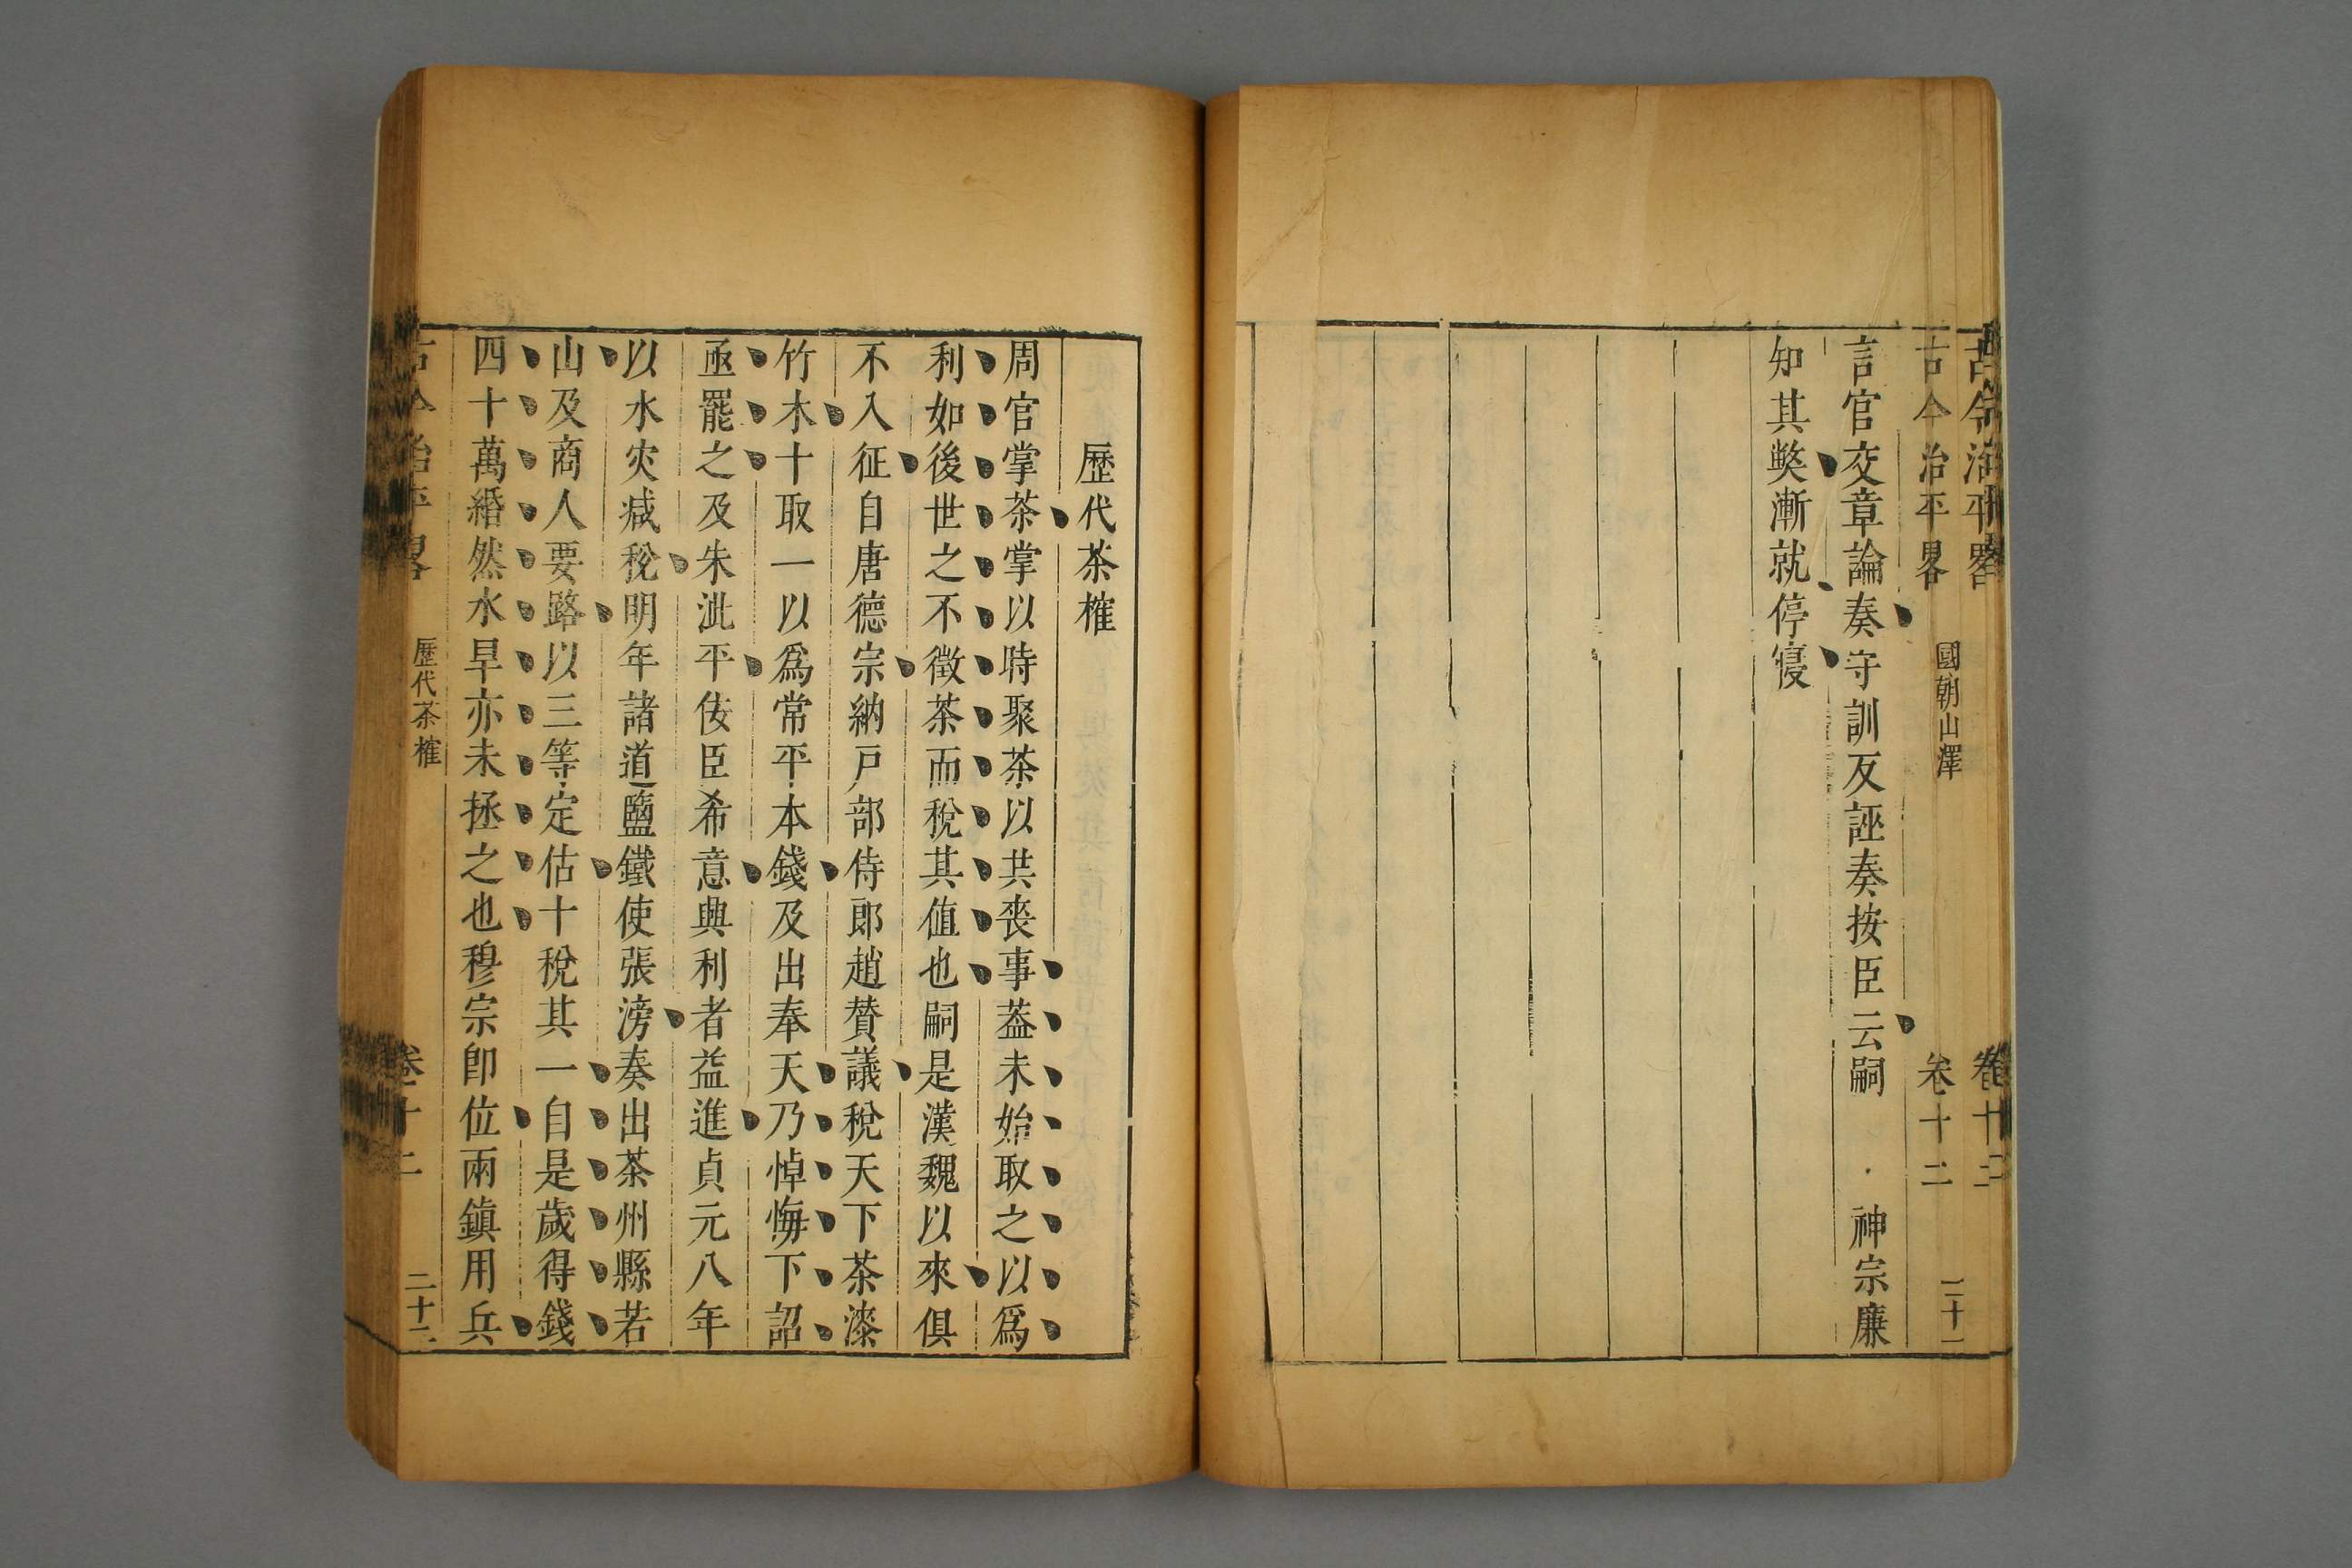 古今治平畧
卷十二
古今治平畧
國朝山澤
卷十二
二十一
言官交章論奏守訓反誣奏按臣云嗣 神宗廉
知其獘漸就停寑
歷代茶榷
周官掌茶掌以時聚茶以共喪事葢未始取之以爲
利如後世之不徵茶而稅其值也嗣是漢魏以來俱
不入征自唐德宗納戸部侍郎趙賛議稅天下茶漆
竹木十取一以爲常平本錢及出奉天乃悼悔下詔
亟罷之及朱泚平佞臣希意興利者益進貞元八年
以水灾減稅明年諸道鹽鐵使張滂奏出茶州縣若
山及商人要路以三等定估十稅其一自是歲得錢
四十萬緡然水旱亦未拯之也穆宗卽位兩鎮用兵
古今治平畧
歷代茶榷
卷十二
二十二